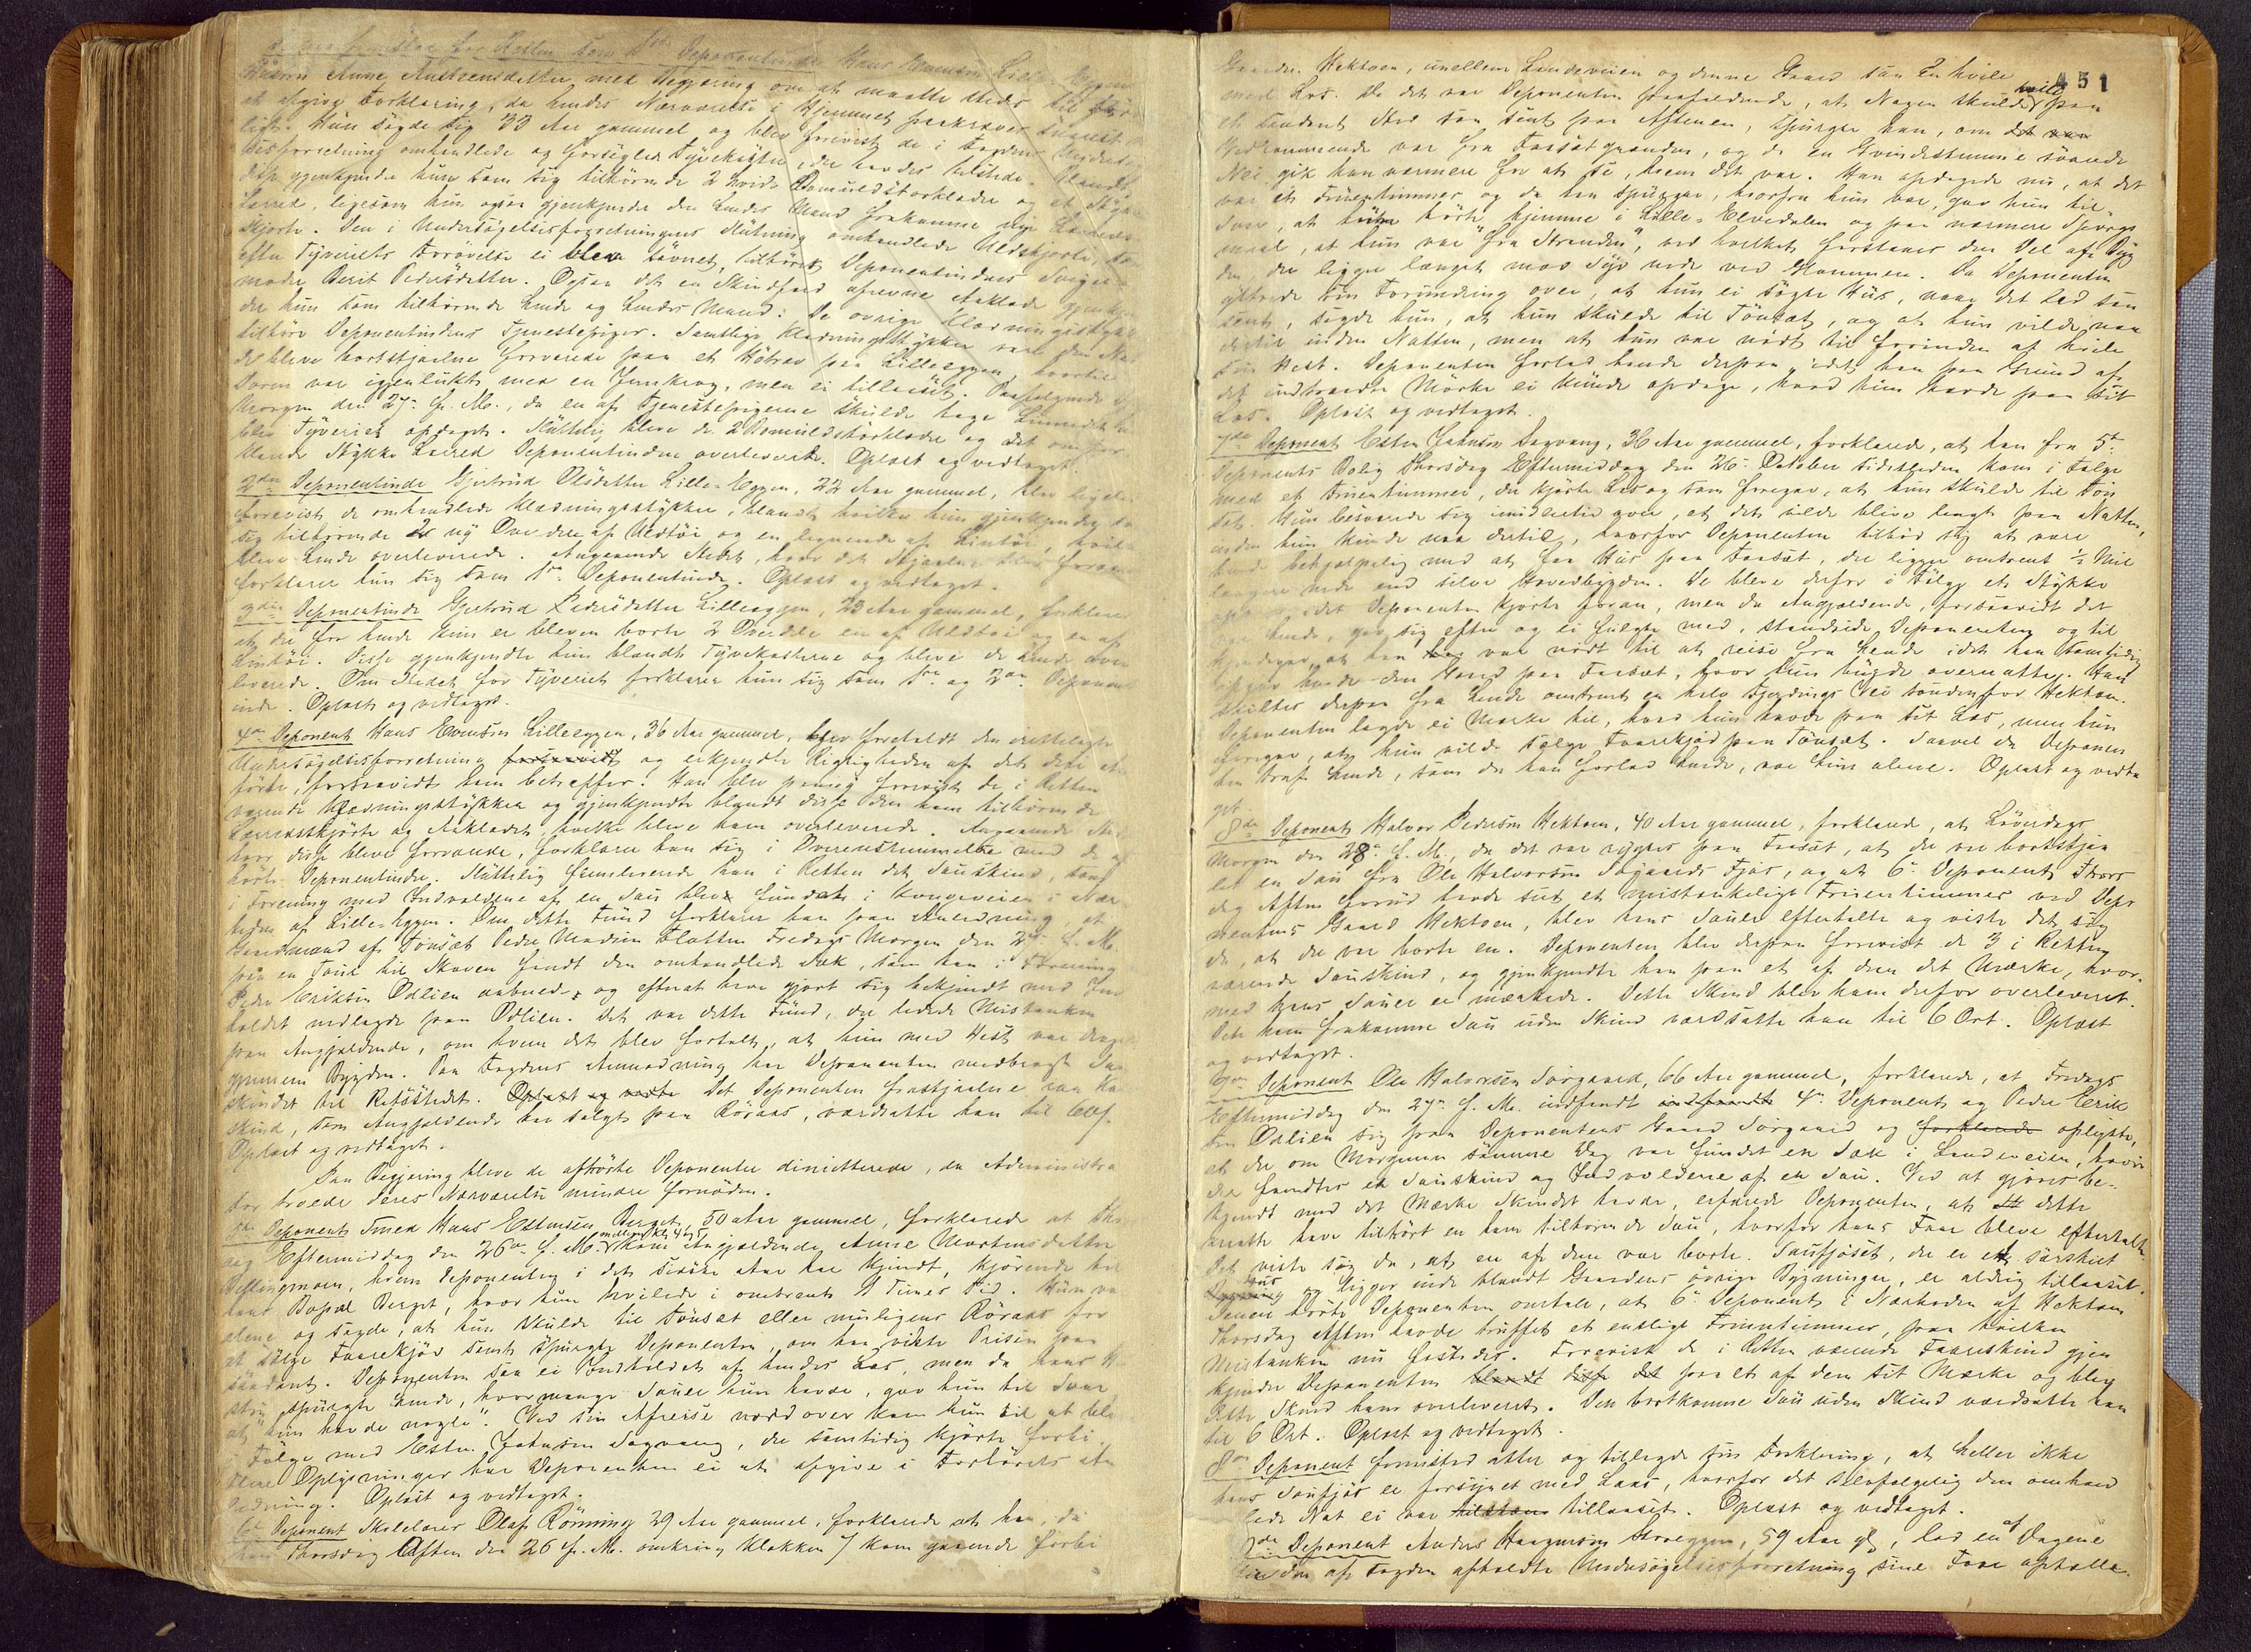 for Retten som 1ste Deponentinde Hans Evensen Lille-Eggen
Hustru Anne Andreasdatter med Begjæring om at maatte stedes til
at afgive Forklaring, da hendes Nærværelse i Hjemmet paakræves snarest
ligt. Hun sagde sig 33 Aar gammel og blev forevist de i Fogdens Undersø
omhandlede og forseglede Tyvekoster
disse gjenkjendte hun som sig tilhørende 2 hvide Bomuldstørklæder og et Stykke
Lærred, ligesom hun ogsaa gjenkjendte den hendes Mand frakomne nye Lærreds
Skjorte. Den i Undersøgelsesforretningens Slutning omhandlede Uldskjorte,
efter Tyveriets Forøvelse ei blev savnet, tilhører Deponentindens Sviger-
moder Berit Pedersdatter. Ogsaa det en Skindfeld afrevne Aaklæde gjenkj
der hun som tilhørende hende og hendes Mand. De øvrige Klædningsstykker
tilhøre Deponentindens Tjenestepiger. Samtlige Klædningsstykker vare den Nat
de bleve bortstjaalne forvarede paa et Stabur paa Lilleeggen, hvortil
Døren var igjenlukket med en Jernkrog, men ei tillaaset. Paafølgende
Morgen den 27. f. M., da en af Tjenestepigerne skulde tage
blev Tyveriet opdaget. Sluttelig bleve de 2 Bomuldstørklæder og det omfor
klarede Stykke Lærred Deponentinden overleveret. Oplæst og vedtaget.
2den Deponentinde Gjertrud Olsdatter Lille-Eggen, 22 Aar gammel, blev ligeledes
forevist de omhandlede Klædningsstykker, blandt hvilke hun gjenkjendte som
sig tilhørende en ny Overdel af Uldtøi og en lignende af Lintøi, hvilke
bleve hende overleverede. Angaaende Stedet, hvor det Stjaalne blev forvaret
forklarer hun sig som 1ste Deponentinde. Oplæst og vedtaget.
3die Deponentinde Gjertrud Pedersdatter Lilleeggen, 23 Aar gammel, forklarer
at der for hende kun er bleven borte 2 Overdele en af Uldtøi og en af
Lintøi. Disse gjenkjendte hun blandt Tyvekosterne og bleve de hende over
leverede. Om Stedet for Tyveriet forklarer hun sig som 1ste og 2den Deponent
inde. Oplæst og vedtaget.
4de Deponent Hans Evensen Lilleeggen, 36 Aar gammel, blev foreholdt den
Undersøgelsesforretning forsaavidt og erkjendte Rigtigheden af det deri
førte, forsaavidt ham betræffer. Han blev paany forevist de i Retten
værende Klædningsstykker og gjenkjendte blandt disse den ham tilhørende
Lærredsskjorte og Aaklædet, hvilke bleve ham overleverede. Angaaende
hvor disse bleve forvarede, forklarer han sig i Overensstemmelse med de af
hørte Deponentinder. Sluttelig fremleverede han i Retten det Saueskind, som
i Forening med Indvoldene af en Sau blev fundet i Kongeveien i Nær
heden af Lille-Eggen. Om dette Fund forklarer han paa Anledning, at
Gaardmand af Tønsæt Peder Madsen Flatten Fredags Morgen den 27 f. M.
paa en Tour til Skoven fandt den omhandlede Sæk, som han i Forening
Peder Eriksen Odlien aabnede, og efterat have gjort sig bekjendt med Ind
holdet nedlagde paa Odlien. Det var dette Fund, der ledede Mistanken
paa Angjældende, om hvem det blev fortalt, at hun med Hest var dragen
gjennem Bygden. Paa Fogdens Anmodning har Deponenten medbragt Sau
skindet til Retsstedet. Oplæst og vedta Det Deponenten frastjaalne
skind, som Angjældende har solgt paa Røraas, værdsatte han til
Oplæst og vedtaget.
Paa Begjæring bleve de afhørte Deponenter dimitterede, da Administra
tor troede deres Nærværelse mindre fornøden.
5te Deponent Smed Hans Estensen Berget, 50 Aar gammel, forklarede at Thors
dag Eftermiddag den 26de f. M. mellem Kl. 4 og 5 kom Angjældende Anne Mortensdatter
Vollingmoen, hvem Deponenten i det sidste Aar har kjendt, kjørende til
hans Bopæl Berget, hvor hun hvilede i omtrent 1 Times Tid. Hun var
alene og sagde, at hun skulde til Tønsæt eller muligens Røraas for
at sælge Faarekjød samt spurgte Deponenten, om han vidste Prisen paa
saadant. Deponenten saa ei Indholdet af hendes Læs, men da hans
spurgte hende, hvormange Sauer hun havde, gav hun til Svar
at "hun havde nogle". Ved sin Afreise nordover kom hun til at blive
i Følge med Esten Johnsen Sagvang, der samtidig kjørte forbi.
Flere Oplysninger har Deponenten ei at afgive i Forhørets An
ledning. Oplæst og vedtaget.
6te Deponent Skolelærer Olaf Rønning 29 Aar gammel, forklarede at han, da
han Thorsdag Aften den 26 f. M. omkring Klokken 7 kom gaaende forbi
451
Gaarden Hektoen, imellem Landeveien og denne Gaard saa En hvile
med Læs. Da det var Deponenten paafaldende, at Nogen skulde hvile paa
et saadant Sted saa sent paa Aftenen, spurgte han, om det var
Vedkommende var fra Faasætgrenden, og da en Qvindestemme svarede
Nei gik han nærmere for at se, hvem det var. Han opdagede nu, at det
var et Fruentimmer, og da han spurgte, hvorfra hun var, gav hun til
Svar, at hun hørte hjemme i Lille-Elvedalen og paa nærmere Spørgs
maal, at hun var "fra Stranden", ved hvilket forstaaes den Del af Byg
den, der ligger længst mod Syd nede ved Glommen. Da Deponenten
yttrede sin Forundring over, at hun ei søgte Hus, naar det led saa
sent, sagde hun, at hun skulde til Tønsæt, og at hun vilde naa
dertil inden Natten, men at hun var nødt til forinden at hvile
sin Hest. Deponenten forlod hende derpaa, idet han paa Grund af
det indtraadte Mørke ei kunde opdage, hvad hun havde paa sit
Læs. Oplæst og vedtaget.
7de Deponent Esten Johnsen Sagvang, 36 Aar gammel, forklarede, at han fra 5te
Deponents Bolig Thorsdag Eftermiddag den 26de Oktober sidstleden kom i Følge
med et Fruentimmer, der kjørte Læs og som foregav, at hun skulde til Tøn
sæt. Hun besværede sig imidlertid over, at det vilde blive langt paa Natten,
inden hun kunde naa dertil, hvorfor Deponenten tilbød sig at være
hende behjælpelig med at faa Hus paa Faasæt, der ligger omtrent 1/2 Mil
længere nede end selve Hovedbygden. De bleve derfor i Følge et Stykke
idet Deponenten kjørte foran, men da Angjældende, forsaavidt det
var hende, gav sig efter og ei fulgte med, standsede Deponenten og til
kjendegav, at han var nødt til at reise fra hende idet han samtidig
opgav hende den Gaard paa Faasæt, hvor hun burde overnatte. Han
skiltes derpaa fra hende omtrent en halv Fjerdings Vei søndenfor Hektoen.
Deponenten lagde ei Mærke til, hvad hun havde paa sit Læs, men hun
foregav, at hun vilde sælge Faarekjød paa Tønsæt. Saavel da Deponen
ten traf hende, som da han forlod hende, var hun alene. Oplæst og vedta
get.
8de Deponent Halvor Pedersen Hektoen, 40 Aar gammel, forklarede, at Løverdags
Morgen den 28de f. M., da det var rygtet paa Faasæt, at der var bortstjaa
let en Sau fra Ole Halvorsen Søgaards Fjøs, og at 6te Deponent Thors
dag Aften forud havde seet et mistænkeligt Fruentimmer ved Depo
nentens Gaard Hektoen, blev hans Sauer eftertalte og viste det sig
da, at der var borte en. Deponenten blev derpaa forevist de 3 i Retten
værende Sauskind, og gjenkjendte han paa et af dem det Mærke, hvor-
med hans Sauer er mærkede. Dette Skind blev ham derfor overleveret.
Den ham frakomne Sau uden Skind værdsatte han til 6 Ort. Oplæst
og vedtaget.
9de Deponent Ole Halvorsen Sørgaard, 66 Aar gammel, forklarede, at Fredags
Eftermiddag den 27de f. M. indfandt indfandt 4de Deponent og Peder Erik
sen Odlien sig paa Deponentens Gaard Sørgaard og forklarede oplyste,
at der om Morgenen samme Dag var fundet en Sæk i Landeveien, hvori
der fandtes et Sauskind og Indvoldene af en Sau. Ved at gjøres be-
kjendt med det Mærke Skindet havde, erfarede Deponenten, at dette
maatte have tilhørt en ham tilhørende Sau, hvorfor hans Faar bleve eftertalte.
Det viste sig da, at en af dem var borte. Saufjøset, der er et særskilt
Hus og ligger inde blandt Gaardens øvrige Bygninger, er aldrig tillaaset.
Senere hørte Deponenten omtale, at 6te Deponent i Nærheden af Hektoen
Thorsdag Aften havde truffet et enligt Fruentimmer, paa hvilken
Mistanken nu fæstedes. Forevist de i Retten værende Faareskind gjen
kjender Deponenten blandt disse det paa et af dem sit Mærke og blev
dette Skind ham overleveret. Den bortkomne Sau uden Skind værdsatte han
til 6 Ort. Oplæst og vedtaget.
8de Deponent fremstod atter og tillagde sin Forklaring, at heller ikke
hans Saufjøs er forsynet med Laas, hvorfor det selvfølgelig den omhand
lede Nat ei var tillaaset. Oplæst og vedtaget.
Deponent Anders Haagensen Storeggen, 59 Aar gl, lod en af Dagene
den af Fogden afholdte Undersøgelsesforretning sine Faar optælle